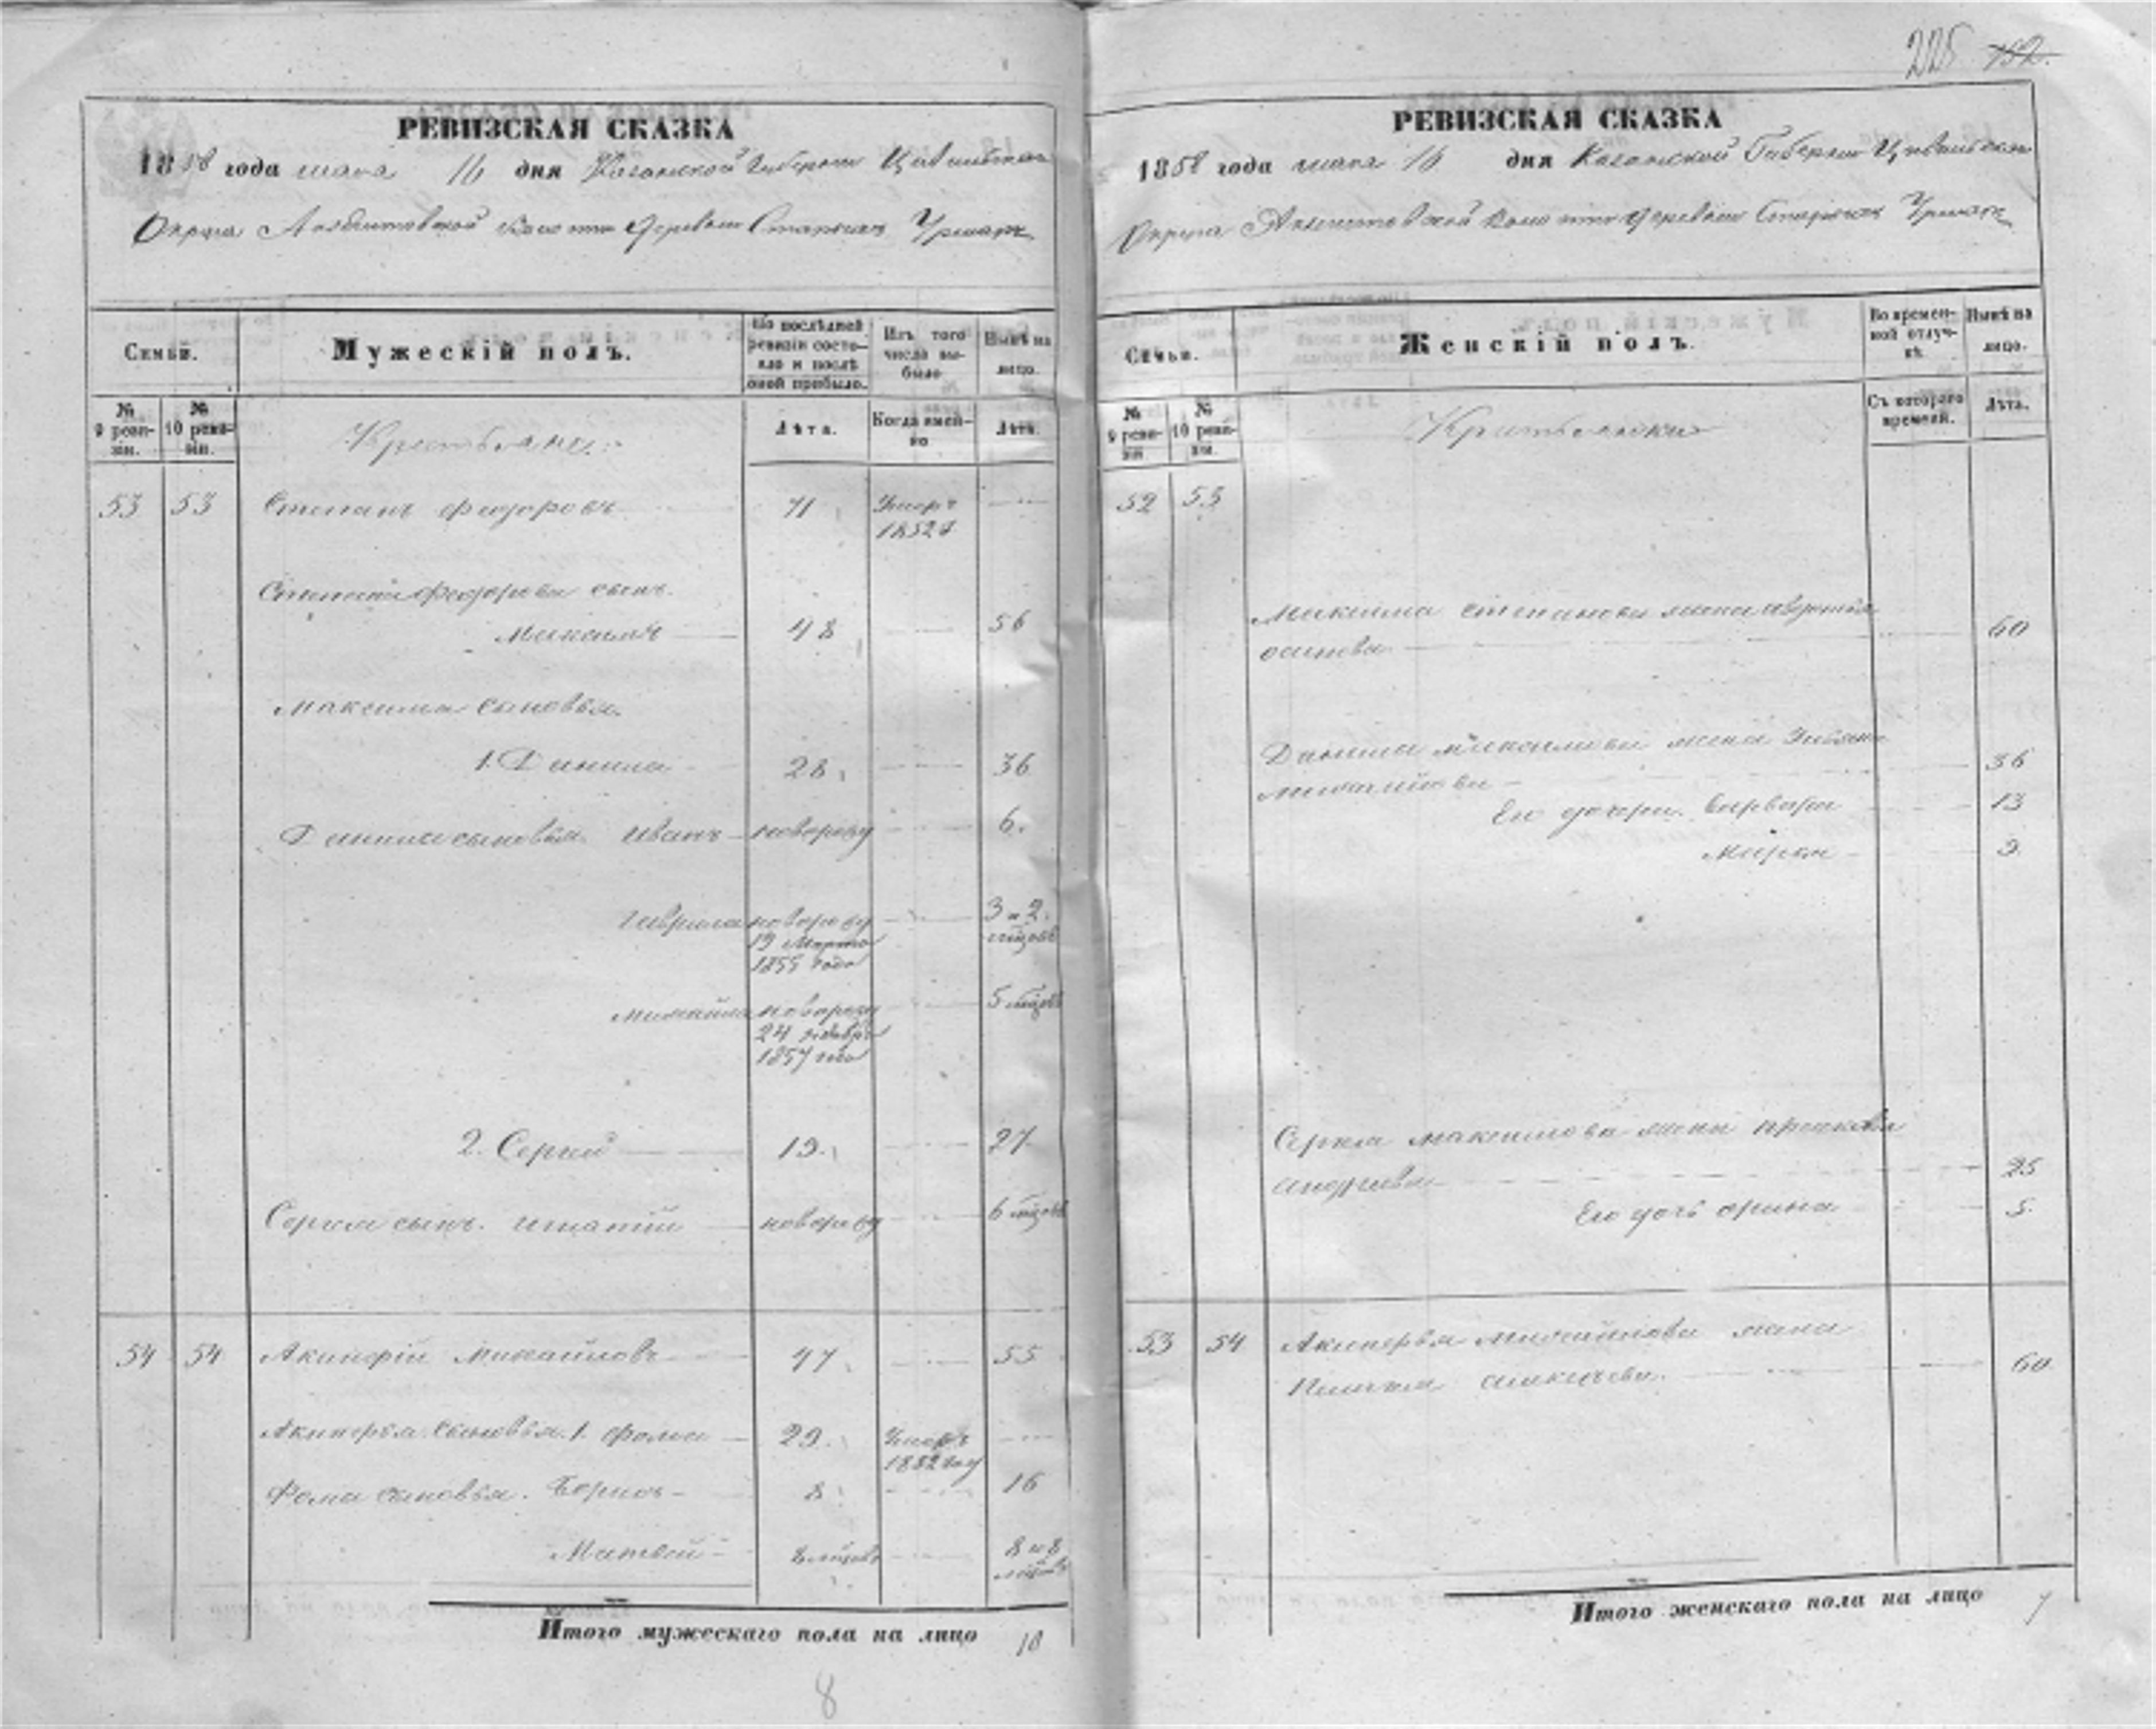 225 132.
РЕВИЗСКАЯ СКАЗКА
1858 года маия 16 дня Казанской Губернии Цивильскаго
Округа волости деревни Старыхъ Урмаръ
Семьи.
Мужескій полъ.
По послѣдней ревизіи состояло и послѣ оной прибыло.
Изъ того числа выбыло
Нынѣ на лицо.
№ 9 ревизіи.
№ 10 ревизіи.
Крестьяне:
Лѣта.
Когда именно
Лѣта.
53 53 Степанъ Федоровъ 71 Умеръ 1852 г
Степана Федорова сынъ.
Максимъ 48 56
Максима сыновья.
1. Данила 28 36
Данила сыновья Иванъ новорожд 6.
Гаврила новорожд 3 и 2. мѣцов
19 Марта
1855 года
Михайла новорожд 5 мѣцов
24 декабря
1857 года
2. Сергей 19. 27
Сергея сынъ. Игнатій новорожд 6 мѣцов
54 54 Акинфій Михайловъ 47. 55
Акинфья сыновья 1. Фома 29. Умеръ
1852 году
Фома сыновья. Борисъ 8 16
Матвей 8 мѣцов 8 и 8 мѣцов
Итого мужескаго пола на лицо 10
8
РЕВИЗСКАЯ СКАЗКА
1858 года маия 16 дня Казанской Губернии Цивильскаго
Округа волости деревни Старыхъ Урмаръ
Семьи.
Женскій полъ.
Во временной отлучкѣ.
Нынѣ на лицо.
№ 9 ревизіи
№ 10 ревизіи.
Крестьянки
Съ котораго времени.
Лѣта.
52 53
Максима Степанова жена
осипова 60
Данила Максимова жена Ульяна
Михайлова 36
Его дочери. Варвара 13
Марья 9
Сергея Максимова жена Прасковья
андреева 25
Его дочь орина 5.
53 54 Акинфья Михайлова жена
60
Итого женскаго пола на лицо 7